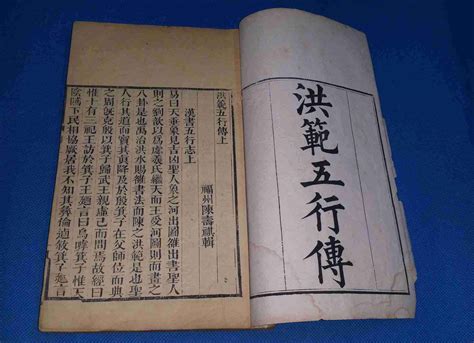 洪範五行傳
洪範五行傳上
福州陳壽祺輯
漢書五行志上
易曰天垂象見吉凶聖人象之河出圖雒出書聖人
則之劉歆以爲虙羲氏繼天而王受河圖則而畫之
八卦是也禹治洪水賜雒書法而陳之洪範是也聖
人行其道而寶其真降及于殷箕子在父師位而典
之周既克殷以箕子歸武王親虛己而問焉故經曰
惟十有三祀王訪于箕子王廼言曰烏嘑箕子惟天
陰騭下民相協厥居我不知其彝倫逌敘箕子廼言